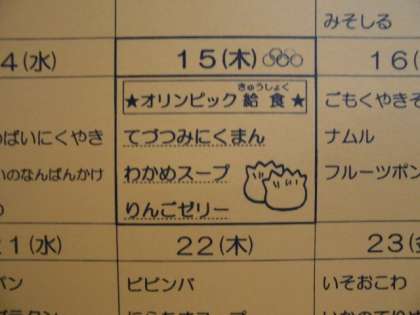 みそしる
4(水)
15(木)
16(
★オリンピック給食★
きゅうしょく
ばいにくやき
てづつみにくまん
ごもくやきそ
いのなんばんかけ
わかめスープ
ナムル
りんごゼリー
フルーツポン
21(水)
22(木)
23(
パン
ビビンバ
いそおこわ